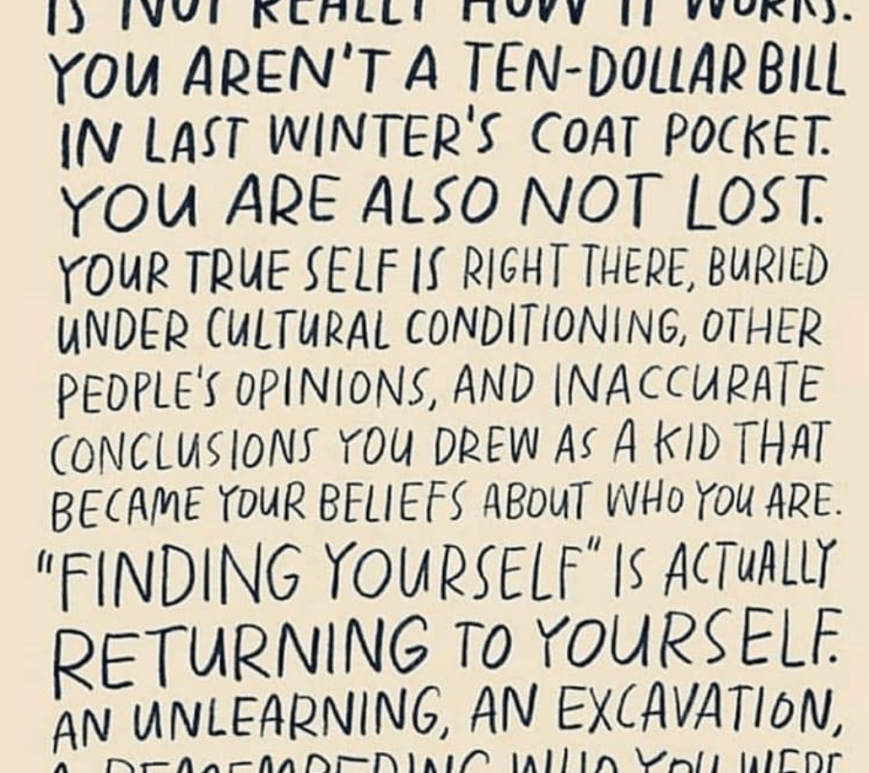 IS NOT REALLY HOW IT WORKS.
YOU AREN'T A TEN-DOLLAR BILL
IN LAST WINTER'S COAT POCKET.
YOU ARE ALSO NOT LOST.
YOUR TRUE SELF IS RIGHT THERE, BURIED
UNDER CULTURAL CONDITIONING, OTHER
PEOPLE'S OPINIONS, AND INACCURATE
CONCLUSIONS YOU DREW AS A KID THAT
BECAME YOUR BELIEFS ABOUT WHO YOU ARE.
"FINDING YOURSELF" IS ACTUALLY
RETURNING TO YOURSELF.
AN UNLEARNING, AN EXCAVATION,
A REMEMBERING WHO YOU WERE